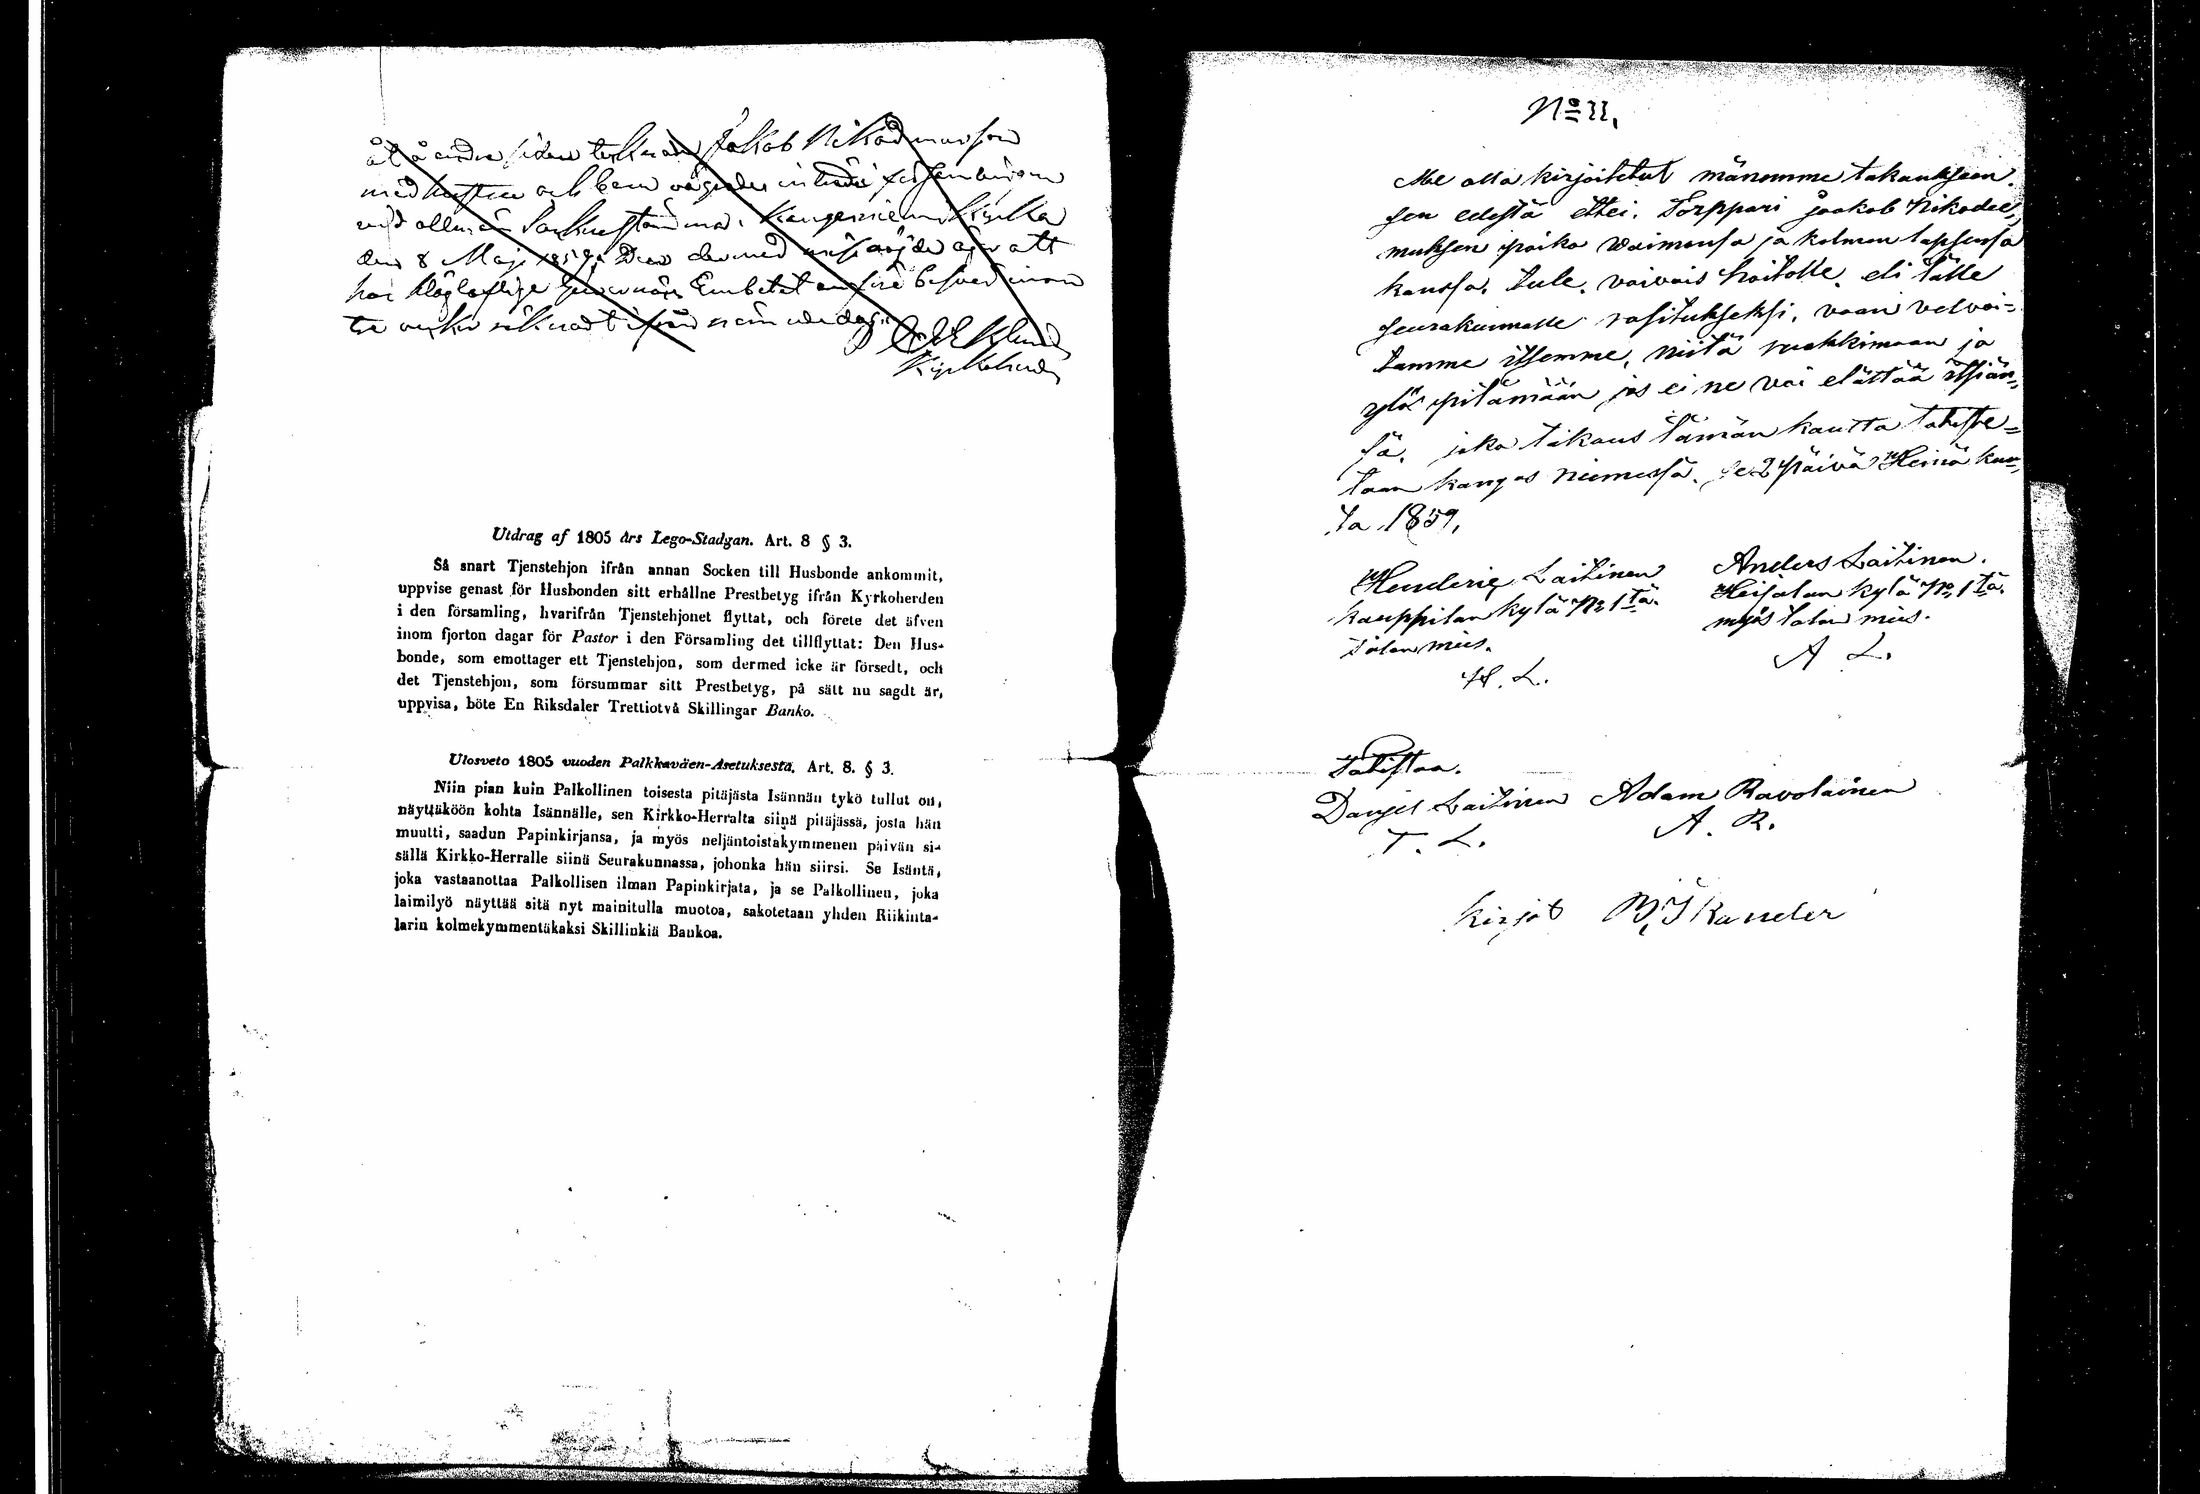 åt å andra sidan tecknade Jakob Nikodemusson
med hustru och barn vägrades inträde i församlingen
vid allmän Sockenstämma i Kangasniemi kyrka
den 8 Maj 1859. Den dermed missnöjde äger att
hos Höglofliga Guvernörs Embetet anföra besvär inom
tretio dagar
Kyrkoherde
Utdrag af 1805 års Lego-Stadgan. Art. 8 § 3.
Så snart Tjenstehjon ifrån annan Socken till Husbonde ankommit,
uppvise genast för Husbonden sitt erhållne Prestbetyg ifrån Kyrkoherden
i den församling, hvarifrån Tjenstehjonet flyttat, och förete det äfven
inom fjorton dagar för Pastor i den Församling det tillflyttat: Den Hus-
bonde, som emottager ett Tjenstehjon, som dermed icke är försedt, och
det Tjenstehjon, som försummar sitt Prestbetyg, på sätt nu sagdt är,
uppvisa, böte En Riksdaler Trettiotvå Skillingar Banko.
Ulosveto 1805 vuoden Palkkaväen-Asetuksesta. Art. 8. § 3.
Niin pian kuin Palkollinen toisesta pitäjästä Isännän tykö tullut on,
näyttäköön kohta Isännälle, sen Kirkko-Herralta siinä pitäjässä, josta hän
muutti, saadun Papinkirjansa, ja myös neljäntoistakymmenen päivän si-
sällä Kirkko-Herralle siinä Seurakunnassa, johonka hän siirsi. Se Isäntä,
joka vastaanottaa Palkollisen ilman Papinkirjata, ja se Palkollinen, joka
laimilyö näyttää sitä nyt mainitulla muotoa, sakotetaan yhden Riikinta-
larin kolmekymmentäkaksi Skillinkiä Bankoa.
No 11.
Me alla kirjoitetut mänemme takaukseen.
sen edestä ettei. Torppari jaakob Nikodee,
muksen poika Waimonsa ja kolmen lapsensa
kanssa. tule. vaivais hoitolle. eli tälle
seurakunnalle rasitukseksi. vaan velvoi=
tamme itsemme, niitä ruokkimaan ja
ylös pitämään jos ei ne voi elättää itsiän,
sä. joka takaus tämän kautta todiste=
taan kangas niemessä. se 2 päivä Heinä kuu,
ta 1859,
Henderig Laitinen
kauppilan kylä No 1tä.
Talon mies.
H. L.
Anders Laitinen.
Heijalan kylä No 1tä.
myös talon mies.
A L.
Todistaa.
Danjel Laitinen Adam Ravolainen
T. L. A. R.
kirjot B, Skander